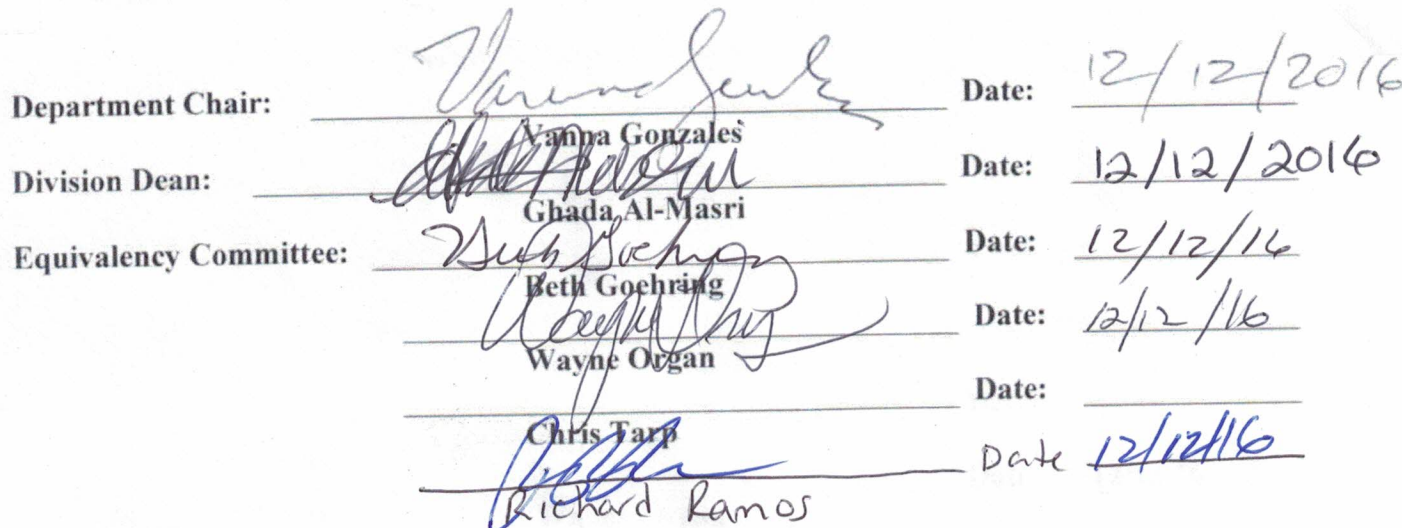 Department Chair: Date: 12/12/2016
Vanna Gonzales
Division Dean: Date: 12/12/2016
Ghada Al-Masri
Equivalency Committee: Date: 12/12/16
Beth Goehring
Date: 12/12/16
Wayne Organ
Date:
Chris Tarp
Date 12/12/16
Richard Ramos